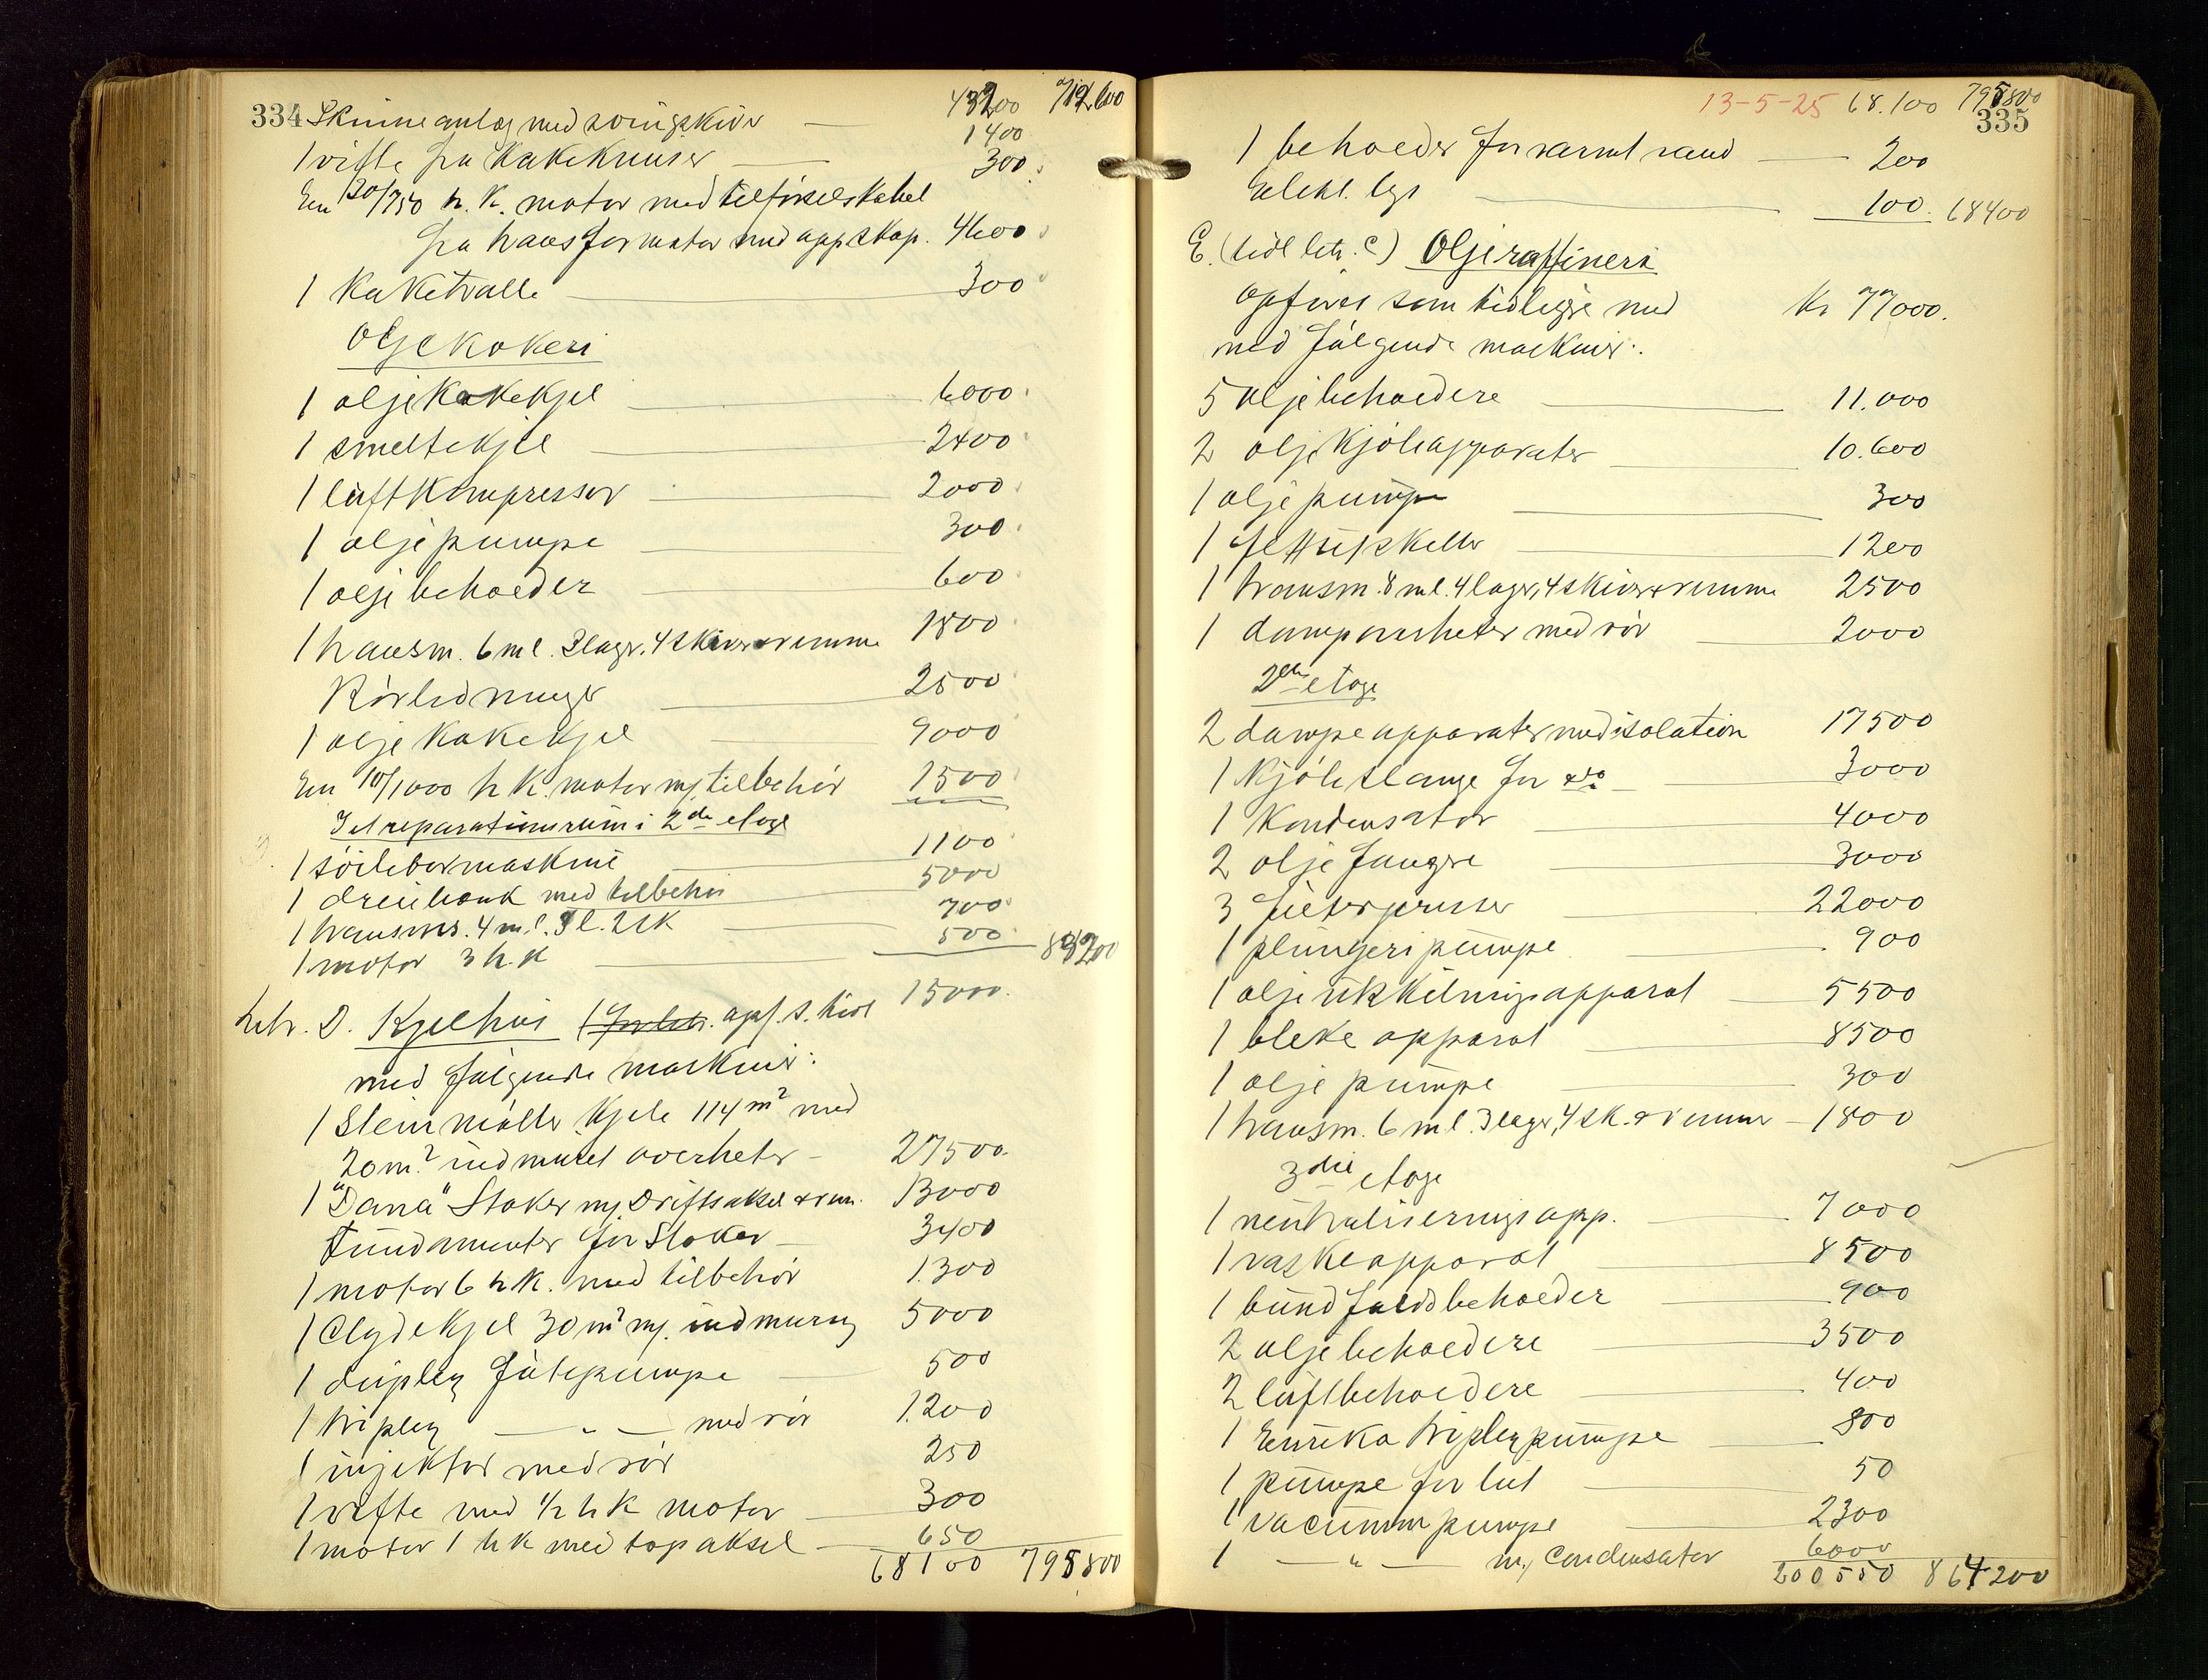 334 43200 712600
Skinneanlæg med svingskiver 1400
1 vifte fra kakeknuser 300
En 20/750 h.k. motor med tilførselskabel
fra transformator med app.skap. 4600
1 kaketralle 300
Oljekokeri
1 oljekokekjel 6000
1 smeltekjel 2400
1 luftkompressor 2000
1 oljepumpe 300
1 oljebeholder 600
1 transm. 6 m l. 3 lager, 4 skiver & remme 1800
Rörledninger 2500
1 oljekokekjel 9000
En 10/1000 h k. motor m/ tilbehör 1500
I et reparationsrum i 2den etage
1 söileboremaskine 1100
1 dreiebænk med tilbehør 5000
1 transms. 4 m.l. 3 l. 2 sk 700
1 motor 3 h.k 500 83200
Litr. D. Kjelhus (for litr. opf. s. tidl 15000.
med følgende maskiner:
1 Steinmüller kjele 114 m² med
20 m² indmuret overheter 27500
1 "Dana" Stoker m/ Driftsaksel & rem. 13000
Fundamenter for Stoker 3400
1 motor 6 h k. med tilbehør 1.300
1 Clydekjel 30 m² m/ indmuring 5000
1 duplex fødepumpe 500
1 triplex — " — med rör 1.200
1 injektor med rör 250
1 vifte med 1/2 h k motor 300
1 motor 1 h k med topaksel 650
68100 795800
13-5-25 68.100 795800
335
1 beholder for varmt vand 200
Elekt. lys 100. 68400
E. (tidl litr. C) Oljeraffineri
opføres som tidligere med Kr 77000.
med følgende maskiner:
5 oljebeholdere 11.000
2 oljekjøleapparater 10.600
1 oljepumpe 300
1 fettutskiller 1200
1 transm. 8 m l. 4 lager, 4 skiver & remme 2500
1 dampoverheter med rör 2000
2den etage
2 dampeapparater med isolation 17500
1 kjøleslange for do 3000
1 Kondensator 4000
2 oljefangere 3000
3 filterpresser 22000
1 plungerpumpe 900
1 oljeutskilningsapparat 5500
1 blekeapparat 8500
1 oljepumpe 300
1 transm. 6 m l. 3 lager, 4 sk. & remmer 1800
3die etage
1 neutraliseringsapp. 7000
1 vaskeapparat 8500
1 bundfaldsbeholder 900
2 oljebeholdere 3500
2 luftbeholdere 400
1 Eureka triplexpumpe 800
1 pumpe for lut 50
1 vacuumpumpe 2300
1 — " — m/ Condensator 6000
200550 864200